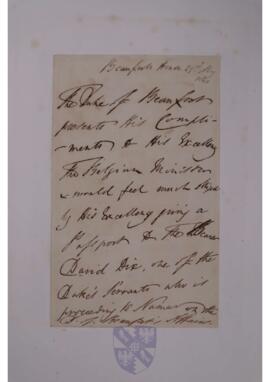 Beaufort House
The Duke of Beaufort
presents His Compli-
ments to His Excellency
The Belgian Minister
& would feel much obliged
by His Excellency giving a
Passport to The Bearer
David Dix, one of the
Duke's Servants who is
proceeding to Namur on the
D. of Beaufort's Affairs